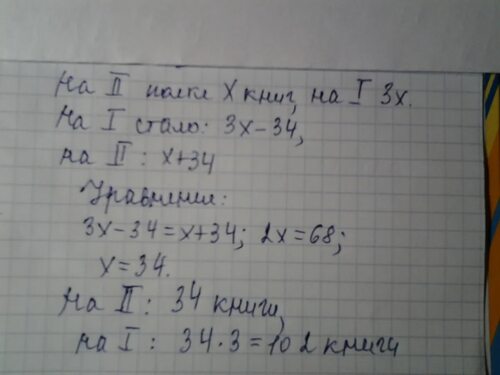 На II полке x книг, на I 3x.
На I стало: 3x-34,
на II: x+34
Уравнение:
3x-34=x+34; 2x=68;
x=34.
На II: 34 книги,
на I: 34·3=102 книги